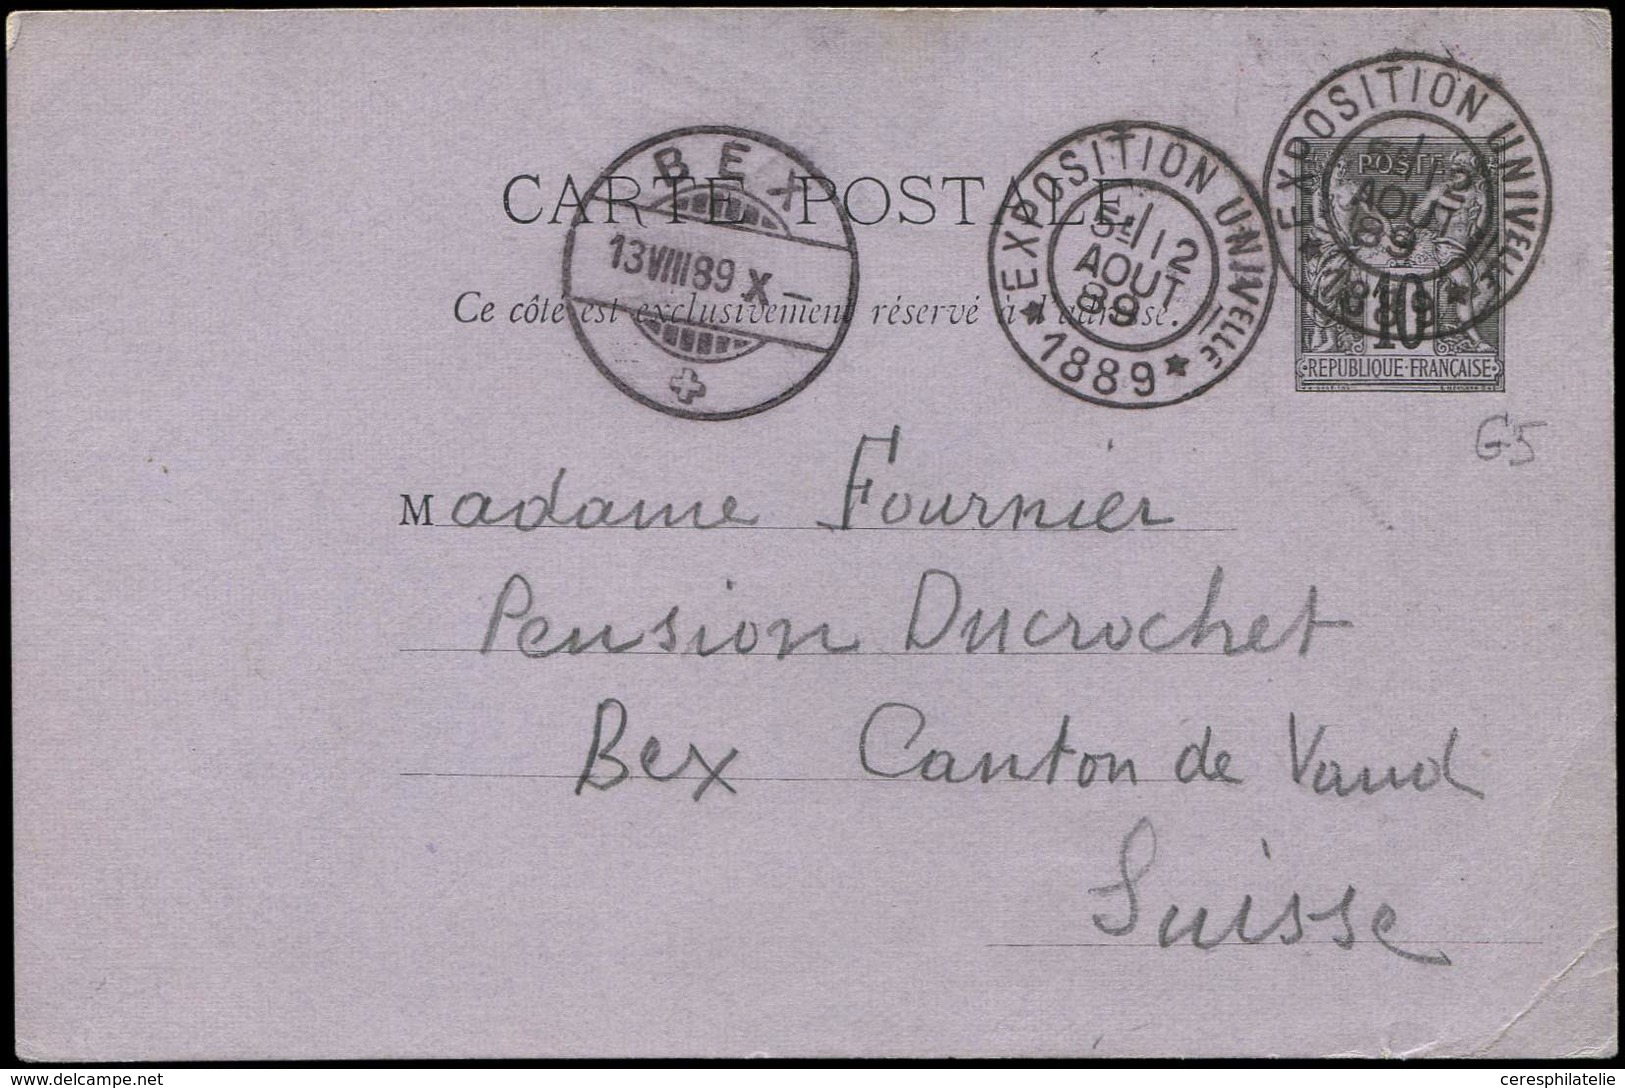 EXPOSITION UNIVELLE
5E/ 12
AOUT
89
★ 1889 ★
POSTE
10
REPUBLIQUE FRANÇAISE
EXPOSITION UNIVELLE
5E/ 12
AOUT
89
★ 1889 ★
BEX
13 VIII 89 X –
CARTE POSTALE
Ce côté est exclusivement réservé à l'adresse.
G5
Madame Fournier
Pension Ducrochet
Bex Canton de Vaud
Suisse
www.delcampe.net
ceresphilatelie